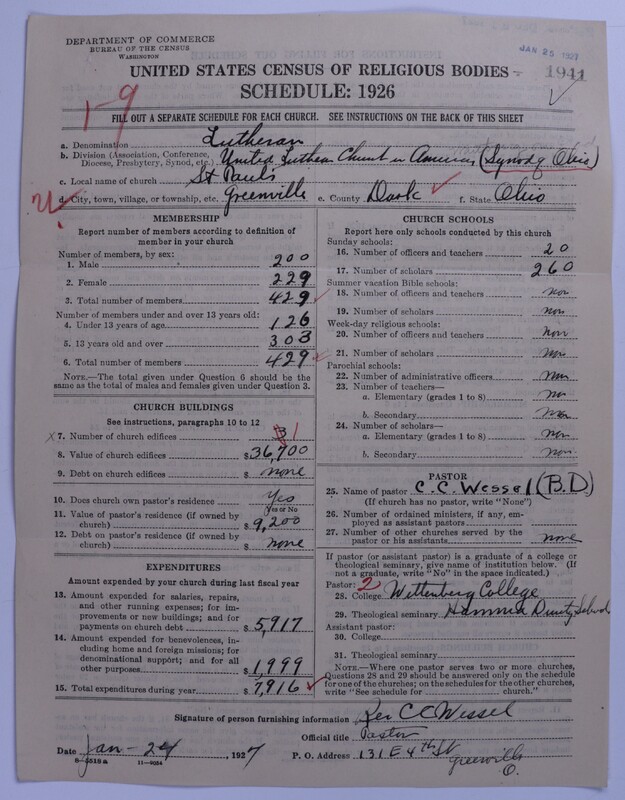 DEPARTMENT OF COMMERCE
BUREAU OF THE CENSUS
WASHINGTON
JAN 25 1927
UNITED STATES CENSUS OF RELIGIOUS BODIES
1941
SCHEDULE: 1926
1-9
FILL OUT A SEPARATE SCHEDULE FOR EACH CHURCH. SEE INSTRUCTIONS ON THE BACK OF THIS SHEET
a. Denomination Lutheran
b. Division (Association, Conference, Diocese, Presbytery, Synod, etc.) United Lutheran Church in America (Synod of Ohio)
c. Local name of church St Paul's
d. City, town, village, or township, etc. Greenville e. County Dark f. State Ohio
MEMBERSHIP
Report number of members according to definition of
member in your church
Number of members, by sex:
1. Male 200
2. Female 229
3. Total number of members 429
Number of members under and over 13 years old:
4. Under 13 years of age 126
5. 13 years old and over 303
6. Total number of members 429
NOTE.—The total given under Question 6 should be the
same as the total of males and females given under Question 3.
CHURCH BUILDINGS
See instructions, paragraphs 10 to 12
x7. Number of church edifices 3 1
8. Value of church edifices $36,700
9. Debt on church edifices $none
10. Does church own pastor's residence Yes
Yes or No
11. Value of pastor's residence (if owned by
church) $9,200
12. Debt on pastor's residence (if owned by
church) $none
EXPENDITURES
Amount expended by your church during last fiscal year
13. Amount expended for salaries, repairs,
and other running expenses; for im-
provements or new buildings; and for
payments on church debt $5,917
14. Amount expended for benevolences, in-
cluding home and foreign missions; for
denominational support; and for all
other purposes $1,999
15. Total expenditures during year $7,916
CHURCH SCHOOLS
Report here only schools conducted by this church
Sunday schools:
16. Number of officers and teachers 20
17. Number of scholars 260
Summer vacation Bible schools:
18. Number of officers and teachers non
19. Number of scholars non
Week-day religious schools:
20. Number of officers and teachers non
21. Number of scholars non
Parochial schools:
22. Number of administrative officers non
23. Number of teachers—
a. Elementary (grades 1 to 8) non
b. Secondary non
24. Number of scholars—
a. Elementary (grades 1 to 8) non
b. Secondary non
PASTOR
25. Name of pastor C. C. Wessel (B.D.)
(If church has no pastor, write "None")
26. Number of ordained ministers, if any, em-
ployed as assistant pastors
27. Number of other churches served by the
pastor or his assistants none
If pastor (or assistant pastor) is a graduate of a college or
theological seminary, give name of institution below. (If
not a graduate, write "No" in the space indicated.)
Pastor: 2
28. College Wittenberg College
29. Theological seminary Hamma Divinity School
Assistant pastor:
30. College
31. Theological seminary
NOTE.—Where one pastor serves two or more churches,
Questions 28 and 29 should be answered only on the schedule
for one of the churches; on the schedules for the other churches,
write "See schedule for church."
Signature of person furnishing information Rev C C Wessel
Official title Pastor
Date Jan - 24, 1927 P. O. Address 131 E 4th St
Greenville
O.
8-5518a 11-9054